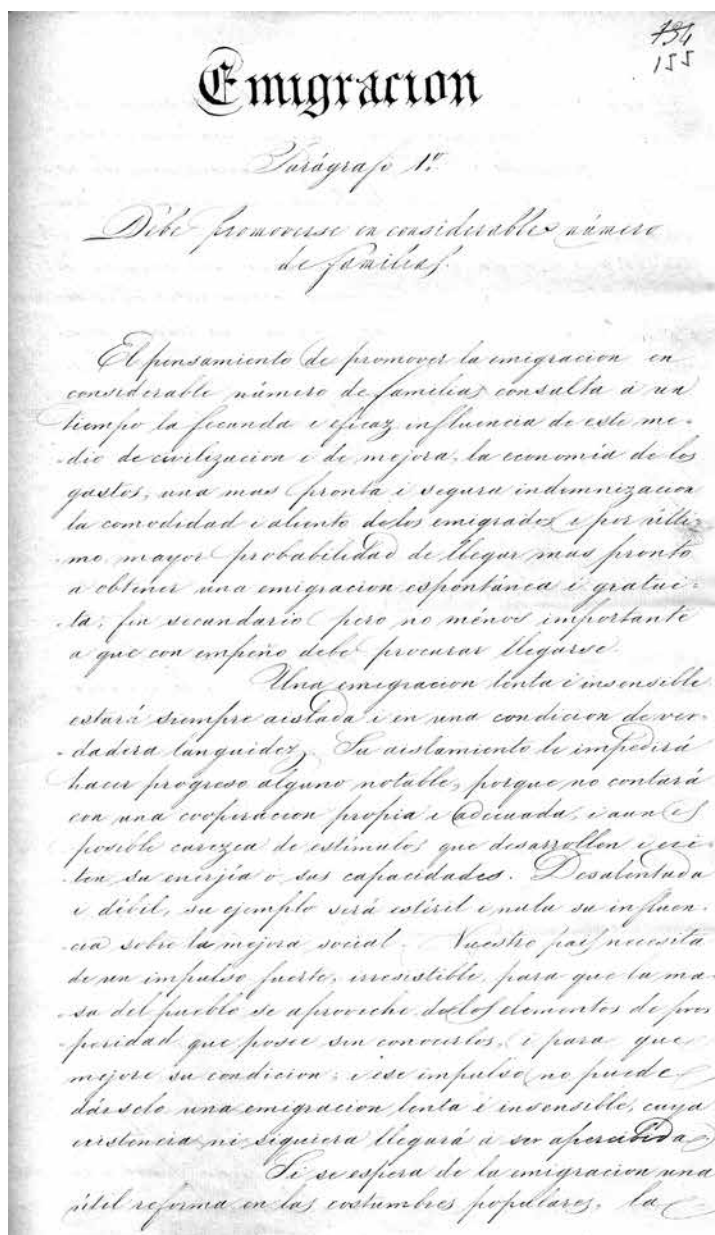 134
155
Emigracion
Parágrafo 1º
Debe promoverse en considerable número
de familias.
El pensamiento de promover la emigracion en
considerable número de familias consulta a un
tiempo la fecunda i eficaz influencia de este me-
-dio de civilizacion i de mejora, la economía de los
gastos, una mas pronta i segura indemnizacion
la comodidad i aliento de los emigrados i por ulti-
mo, mayor probabilidad de llegar mas pronto
a obtener una emigracion espontánea i gratui-
-ta; fin secundario pero no ménos importante
a que con empeño debe procurar llegarse.
Una emigracion lenta i insensible
estará siempre aislada i en una condicion de ver-
-dadera languidez. Su aislamiento le impedirá
hacer progreso alguno notable, porque no contará
con una cooperacion propia i adecuada, i aun es
posible carezca de estímulos que desarrollen i esci-
-ten su enerjía o sus capacidades. Desalentada
i débil, su ejemplo será estéril i nula su influen-
cia sobre la mejora social. Nuestro pais necesita
de un impulso fuerte, irresistible, para que la ma-
-sa del pueblo se aproveche de los elementos de pros
peridad que posee sin conocerlos, i para que
mejore su condicion; i ese impulso no puede
dárselo una emigracion lenta i insensible, cuya
existencia ni siquiera llegará a ser apercibida.
Si se espera de la emigracion una
útil reforma en las costumbres populares, la